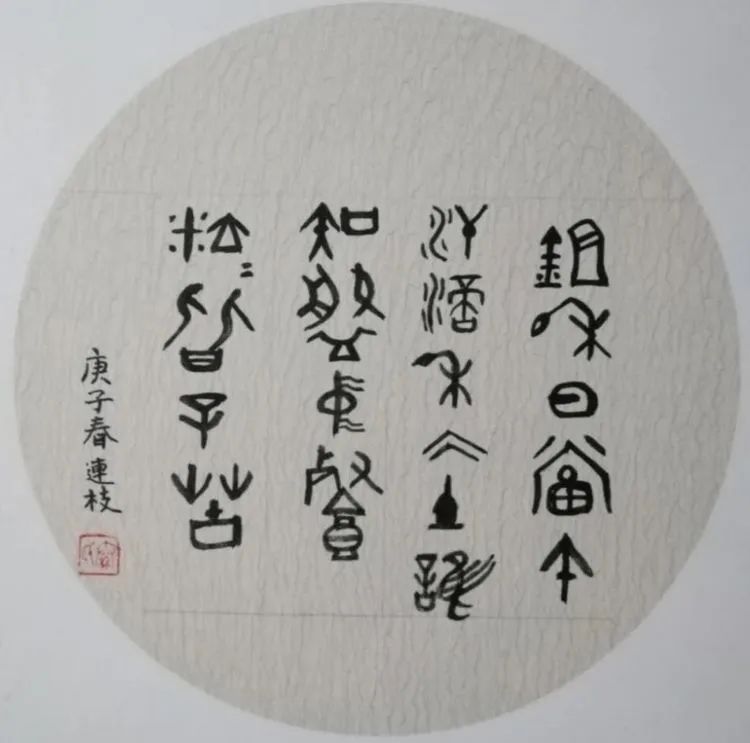 鉏禾日當午
汗滴禾下土誰
知盤中餐
粒〻皆辛苦
庚子春連枝